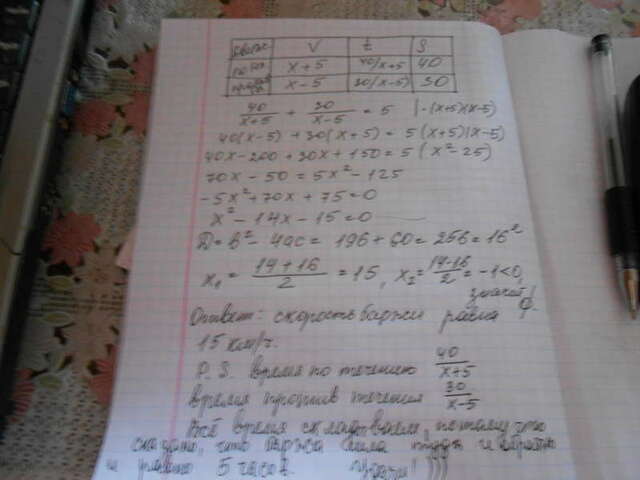 V t S
по теч. x+5 40/x+5 40
против x-5 30/x-5) 30
40/x+5 + 30/x-5 = 5 |·(x+5)(x-5)
40(x-5) + 30(x+5) = 5(x+5)(x-5)
40x-200+30x+150=5(x²-25)
70x-50=5x²-125
-5x²+70x+75=0
x²-14x-15=0
D=b²-4ac=196+60=256=16²
x₁= 14+16/2 =15, x₂= 14-16/2 = -1<0,
Ответ: скорость баржи равна
15 км/ч.
P.S. время по течению 40/x+5
время против течения 30/x-5
Всё время складываем, потому что
сказано, что баржа шла туда и обратно
и равно 5 часов.